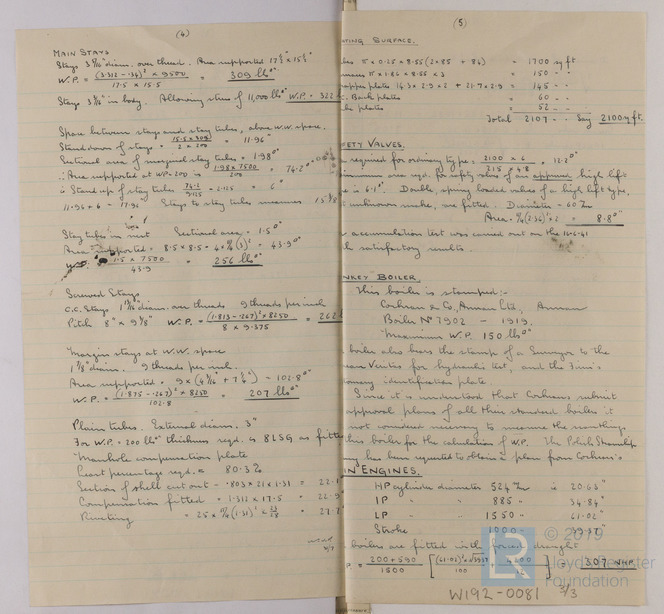 (4)
MAIN STAYS
Stays 3 5/16" diam. over thread. Area supported 17½" x 15½"
W.P. = (3.312 - .34)² x 9500 / 17.5 x 15.5 = 309 lbs□"
Stays 3 5/16" in body. Allowing stress of 11,000 lbs□" W.P. = 322
Space between stays and stay tubes, above W.W. space.
Stand down of stays = 15.5 x 305 / 2 x 205 = 11.96
Sectional area of marginal stay tubes = 1.98□"
∴ Area supported at WP=200 is 1.98 x 7500 / 200 = 74.2□"
∴ Stand up of stay tubes 74.2 / 9.125 - 2.125 = 6"
11.96 + 6 = 17.96" Stays to stay tubes measures
Stay tubes in nest Sectional area = 1.50□"
Area supported = 8.5 x 8.5 - 4 x π/4 (3)² = 43.9□"
1.5 x 7500 / 43.9 = 256 lbs□"
Screwed Stays
C.C. Stays diam. over threads 9 threads per inch
Pitch 8" x 9 3/8" W.P. = (1.813 - .267)² x 8250 / 8 x 9.375 = 262
Margin stays at W.W. space
1 7/8" diam. 9 threads per inch.
Area supported = 102.8□"
W.P. = (1.875 - .267)² x 8250 / 102.8 = 207 lbs□"
Plain tubes. External diam. 3"
For W.P. = 200 lbs□" thickness reqd. is 8 LSG as fitted
Manhole compensation plate
Least percentage reqd. = 80.3%
Section of shell cut out = .803 x 21 x 1.31 = 22.1
Compensation fitted = 1.312 x 17.5 = 22.9
Riveting = 25 x π/4 (1.31)² x 23/28 = 27.7
(5)
ATING SURFACE.
bes π x 0.25 x 8.55 (2 x 85 + 84) = 1700 sq ft
urnaces π x 1.86 x 8.55 x 3 = 150 " "
pper plates 14.3 x 2.9 x 2 + 21.7 x 2.9 = 145 " "
C. Back plates = 60 " "
be plates = 52 " "
Total 2107 " " Say 2100 sq ft.
FETY VALVES.
a required for ordinary type = 2100 x 6 / 215 x 4.8 = 12.2□"
inimum area reqd. for safety valve of an approved high lift
e is 6.1□". Double, spring loaded valve of a high lift type,
f unknown make, are fitted. Diameter = 60 mm
Area = π/4 (2.36)² x 2 = 8.8□"
n accumulation test was carried out on the 16-6-41
h satisfactory results.
NKEY BOILER
This boiler is stamped:-
Cochran & Co., Annan Ltd., Annan
Boiler No 7902 - 1919.
Maximum W.P. 150 lbs□"
boiler also bears the stamp of a Surveyor to the
eau Veritas for hydraulic test, and the firm's
onary identification plate.
Since it is understood that Cochrans submit
approval plans of all their standard boilers it
not considered necessary to measure the
this boiler for the calculation of W.P. The Polish
ny has been requested to obtain a plan from Cochran's
IN ENGINES.
HP cylinder diameter 524 mm is 20.63"
IP " " 885 " 34.84"
LP " " 1550 " 61.02"
Stroke 1000 " 39.37"
boilers are fitted with forced draught
P. = 200 + 590 / 1500 [ (61.02)² x √39.37 / 100 + 4200 / ] = 307 NHP.
© 2019
Lloyd's Register
Foundation
LR
W192-0081 3/3